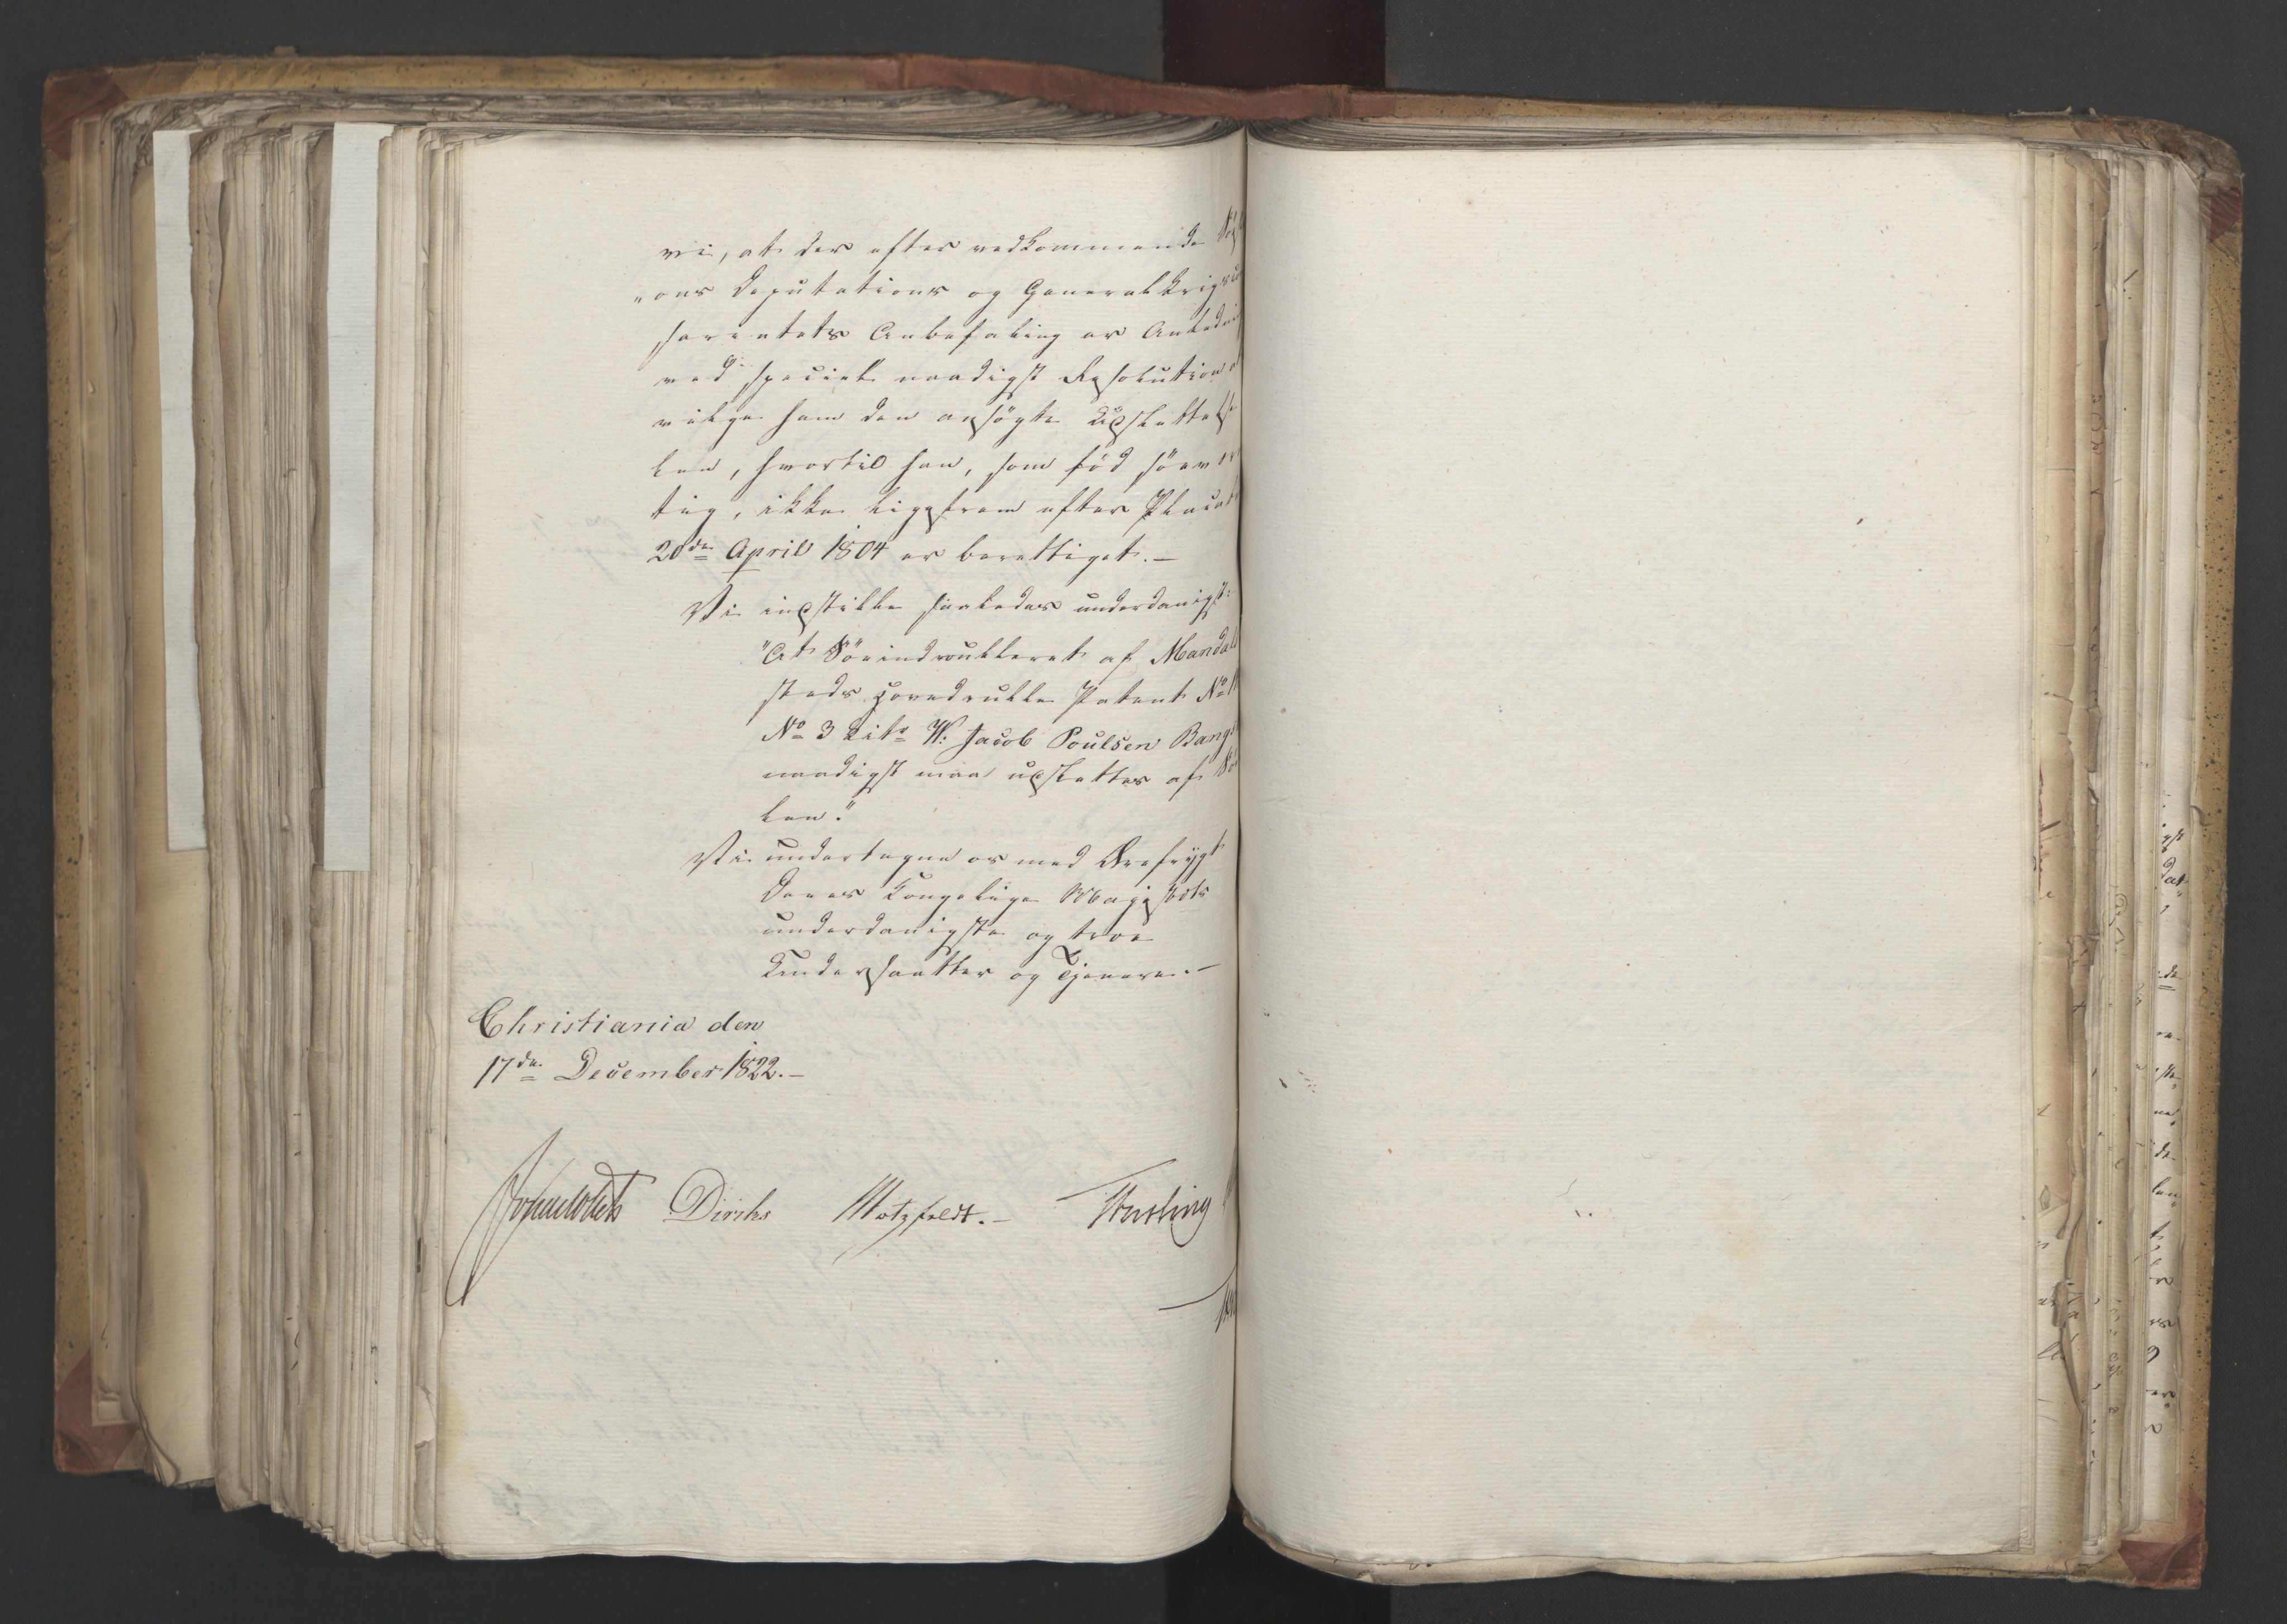 vi, at der efter vedkommende
"ons Deputations og Generalkrigs
sariatets Anbefaling er Anledn
ved speciel naadigst Resolution
vilge ham den ansögte Udslettels
len, hvortil han, som föd söev
tig, ikke ligefrem efter Placat
20de April 1804 er berettiget.—
Vi indstille saaledes underdanigst:
"At Söeindroulleret af Mandals
steds Hovedrulle Patent No
No 3 Litr W. Jacob Poulsen Bang
naadigst maa udslettes af
len."
Vi undertegne os med Ærefrygt
Deres Kongelige Majestæts
underdanigste og troe
Undersaatter og Tjenere.—
Christiania den
17de December 1822.—
Diriks Motzfeldt.—